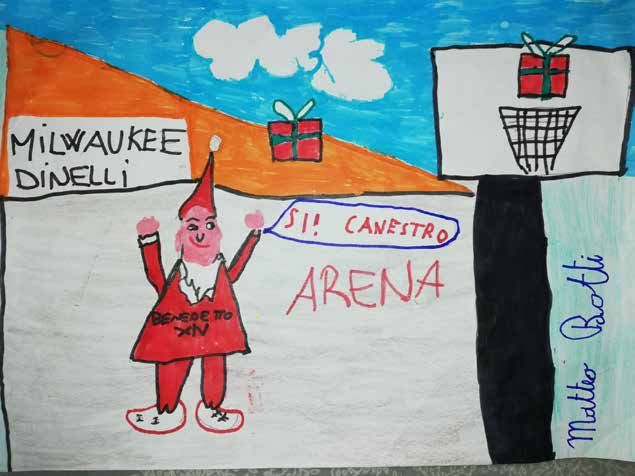 MILWAUKEE
DINELLI
SI! CANESTRO
ARENA
BENEDETTO
XIV
Matteo Botti